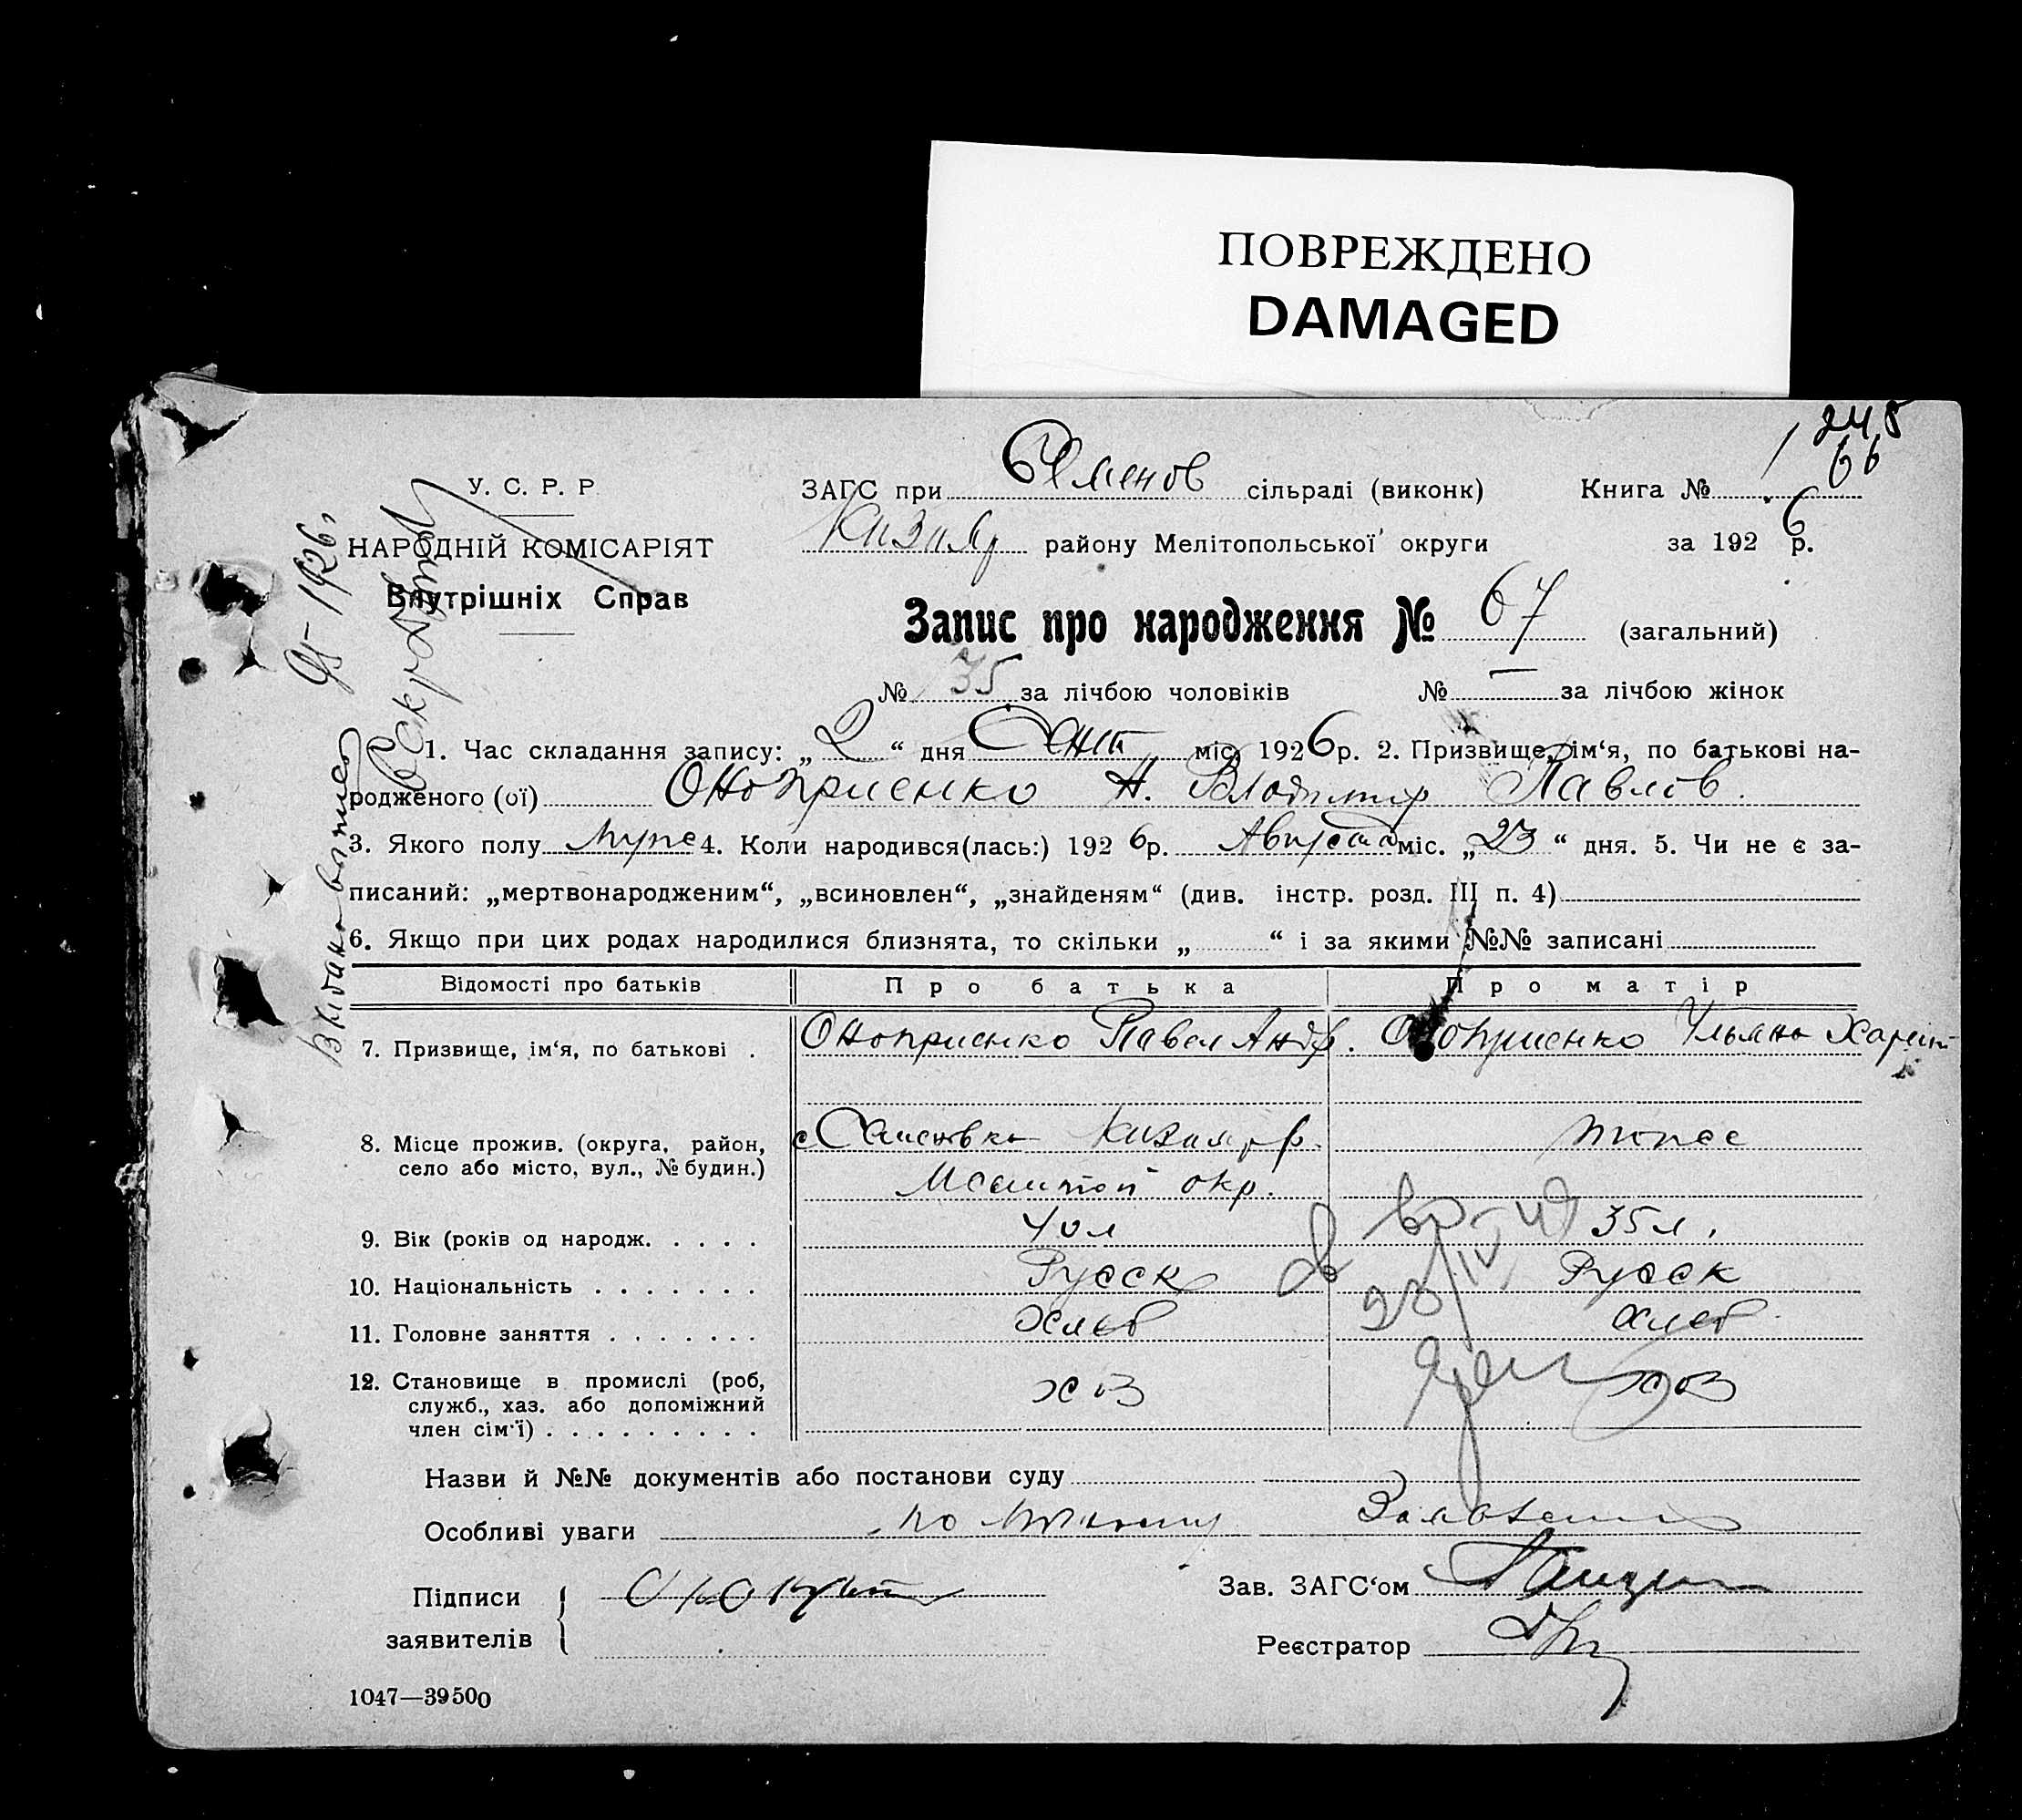 ПОВРЕЖДЕНО
DAMAGED
245
66
У. С. Р. Р.
НАРОДНІЙ КОМІСАРІЯТ
Внутрішніх Справ
ЗАГС при Семенов сільраді (виконк) Книга №
Кизияр району Мелітопольської округи за 1926 р.
Запис про народження № 67 (загальний)
№ 35 за лічбою чоловіків № — за лічбою жінок
1. Час складання запису: „2“ дня Сент міс. 1926 р. 2. Призвище, ім‘я, по батькові на-
родженого (ої) Оноприенко Н. Владимир Павлов.
3. Якого полу муже 4. Коли народився(лась:) 1926 р. Августа міс. „23“ дня. 5. Чи не є за-
писаний: „мертвонародженим“, „всиновлен“, „знайденям“ (див. інстр. розд. III п. 4)
6. Якщо при цих родах народилися близнята, то скільки „ “ і за якими №№ записані
Відомості про батьків Про батька Про матір
7. Призвище, ім‘я, по батькові . Оноприенко Павел Андр. Оноприенко Ульяна Харит
8. Місце прожив. (округа, район, с Семеновка Кизияр р. тоже
село або місто, вул., № будин.) Мелитоп окр.
9. Вік (років од народж. . . . . 40 л 35 л.
10. Національність . . . . . . . Русск Русск
11. Головне заняття . . . . . . . Хлеб Хлеб.
12. Становище в промислі (роб, хоз хоз
служб., хаз. або допоміжний
член сім‘ї) . . . . . . . . .
Назви й №№ документів або постанови суду
Особливі уваги по
Підписи
заявителів
Зав. ЗАГС‘ом
Реєстратор
1047—39500